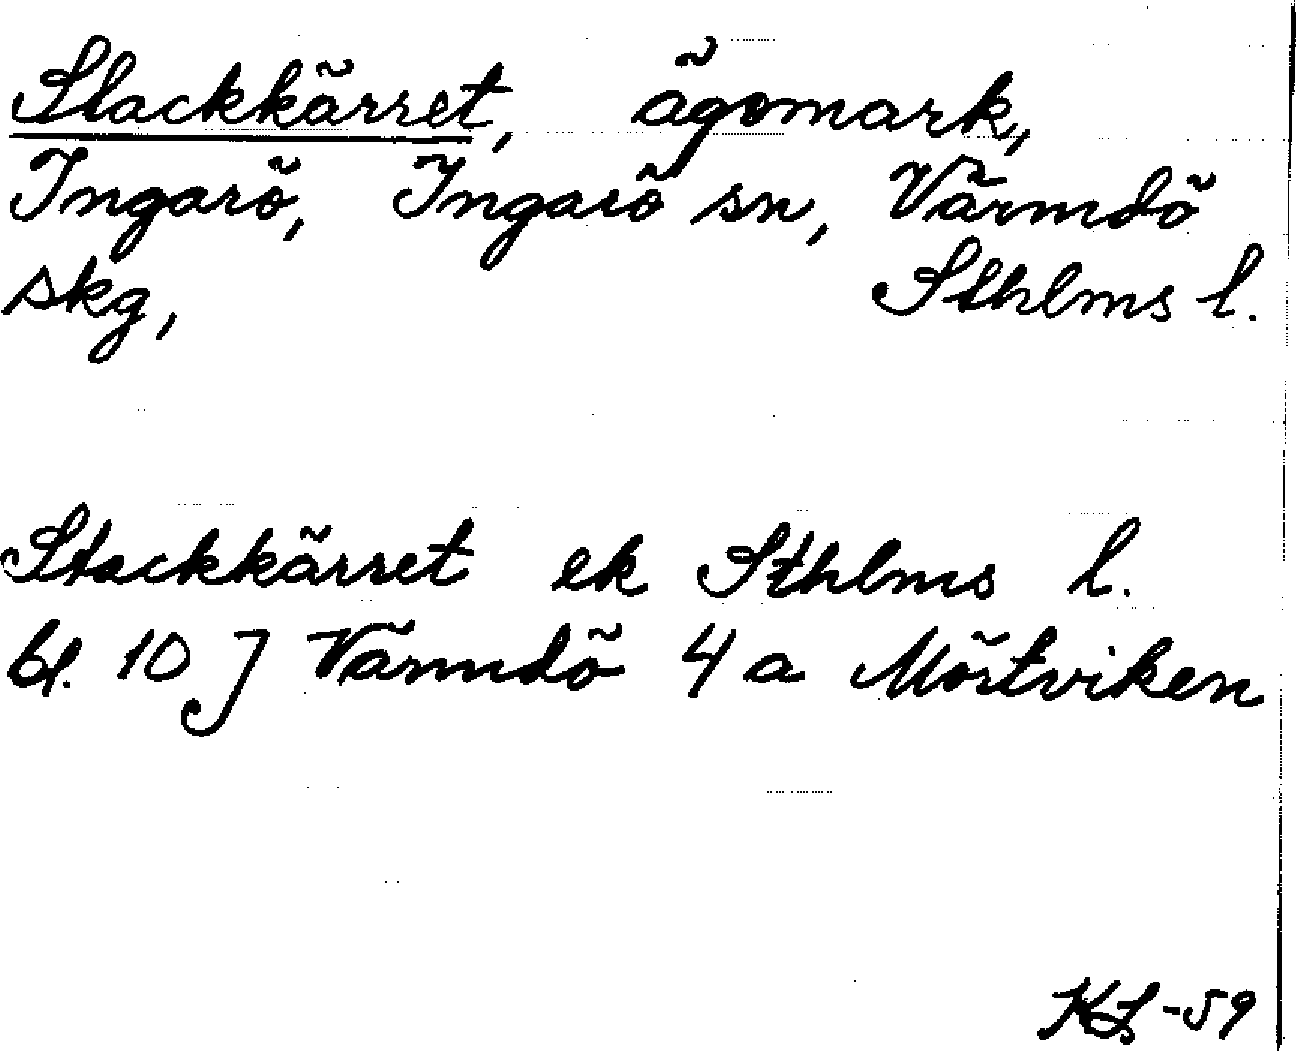 Stackkärret, ägomark,
Ingarö, Ingarö sn, Värmdö
skg, Sthlms l.
Stackkärret ek Sthlms l.
bl. 10 J Värmdö 4 a Mörtviken
KL -59